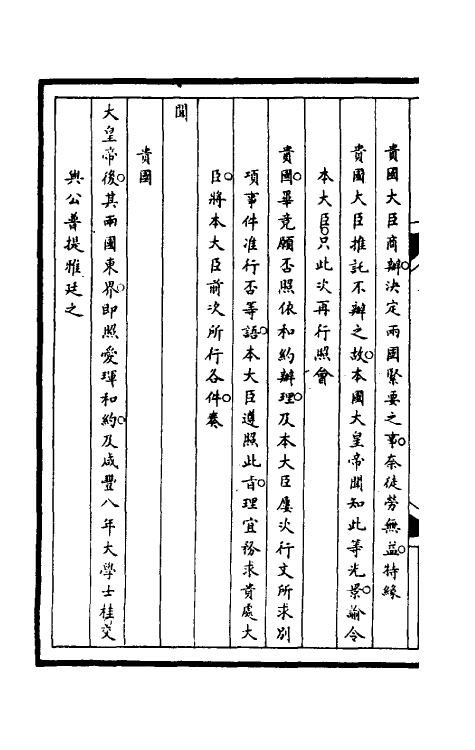 貴國大臣商辦。決定兩國緊要之事。奈徒勞無益。特緣
貴國大臣推託不辦之故。本國大皇帝聞知此等光景。諭令
本大臣。只此次再行照會
貴國。畢竟願否照依和約辦理。及本大臣屢次行文所求別
項事件准行否等語。本大臣遵照此旨。理宜務求貴處大
臣。將本大臣前次所行各件。奏
聞
貴國
大皇帝。後其兩國東界。即照愛琿和約。及咸豐八年大學士桂交
與公普提雅廷之